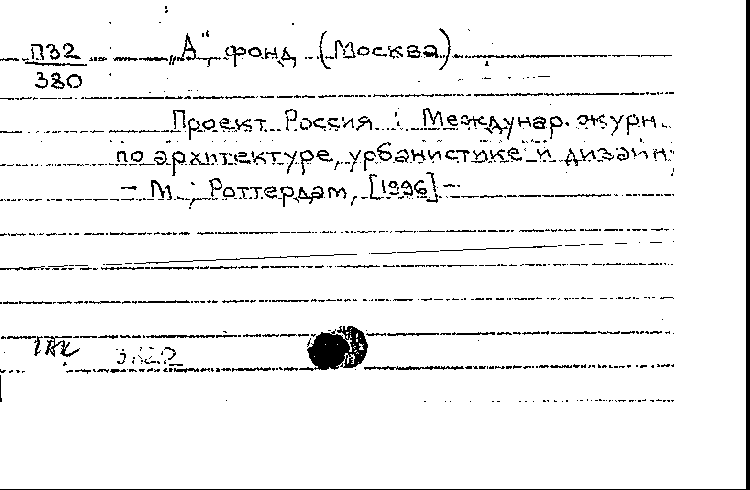 П32 "А", фонд (Москва)
380
Проект Россия : Междунар. журн.
по архитектуре, урбанистике и дизайн
- М. ; Роттердам, [1996] -